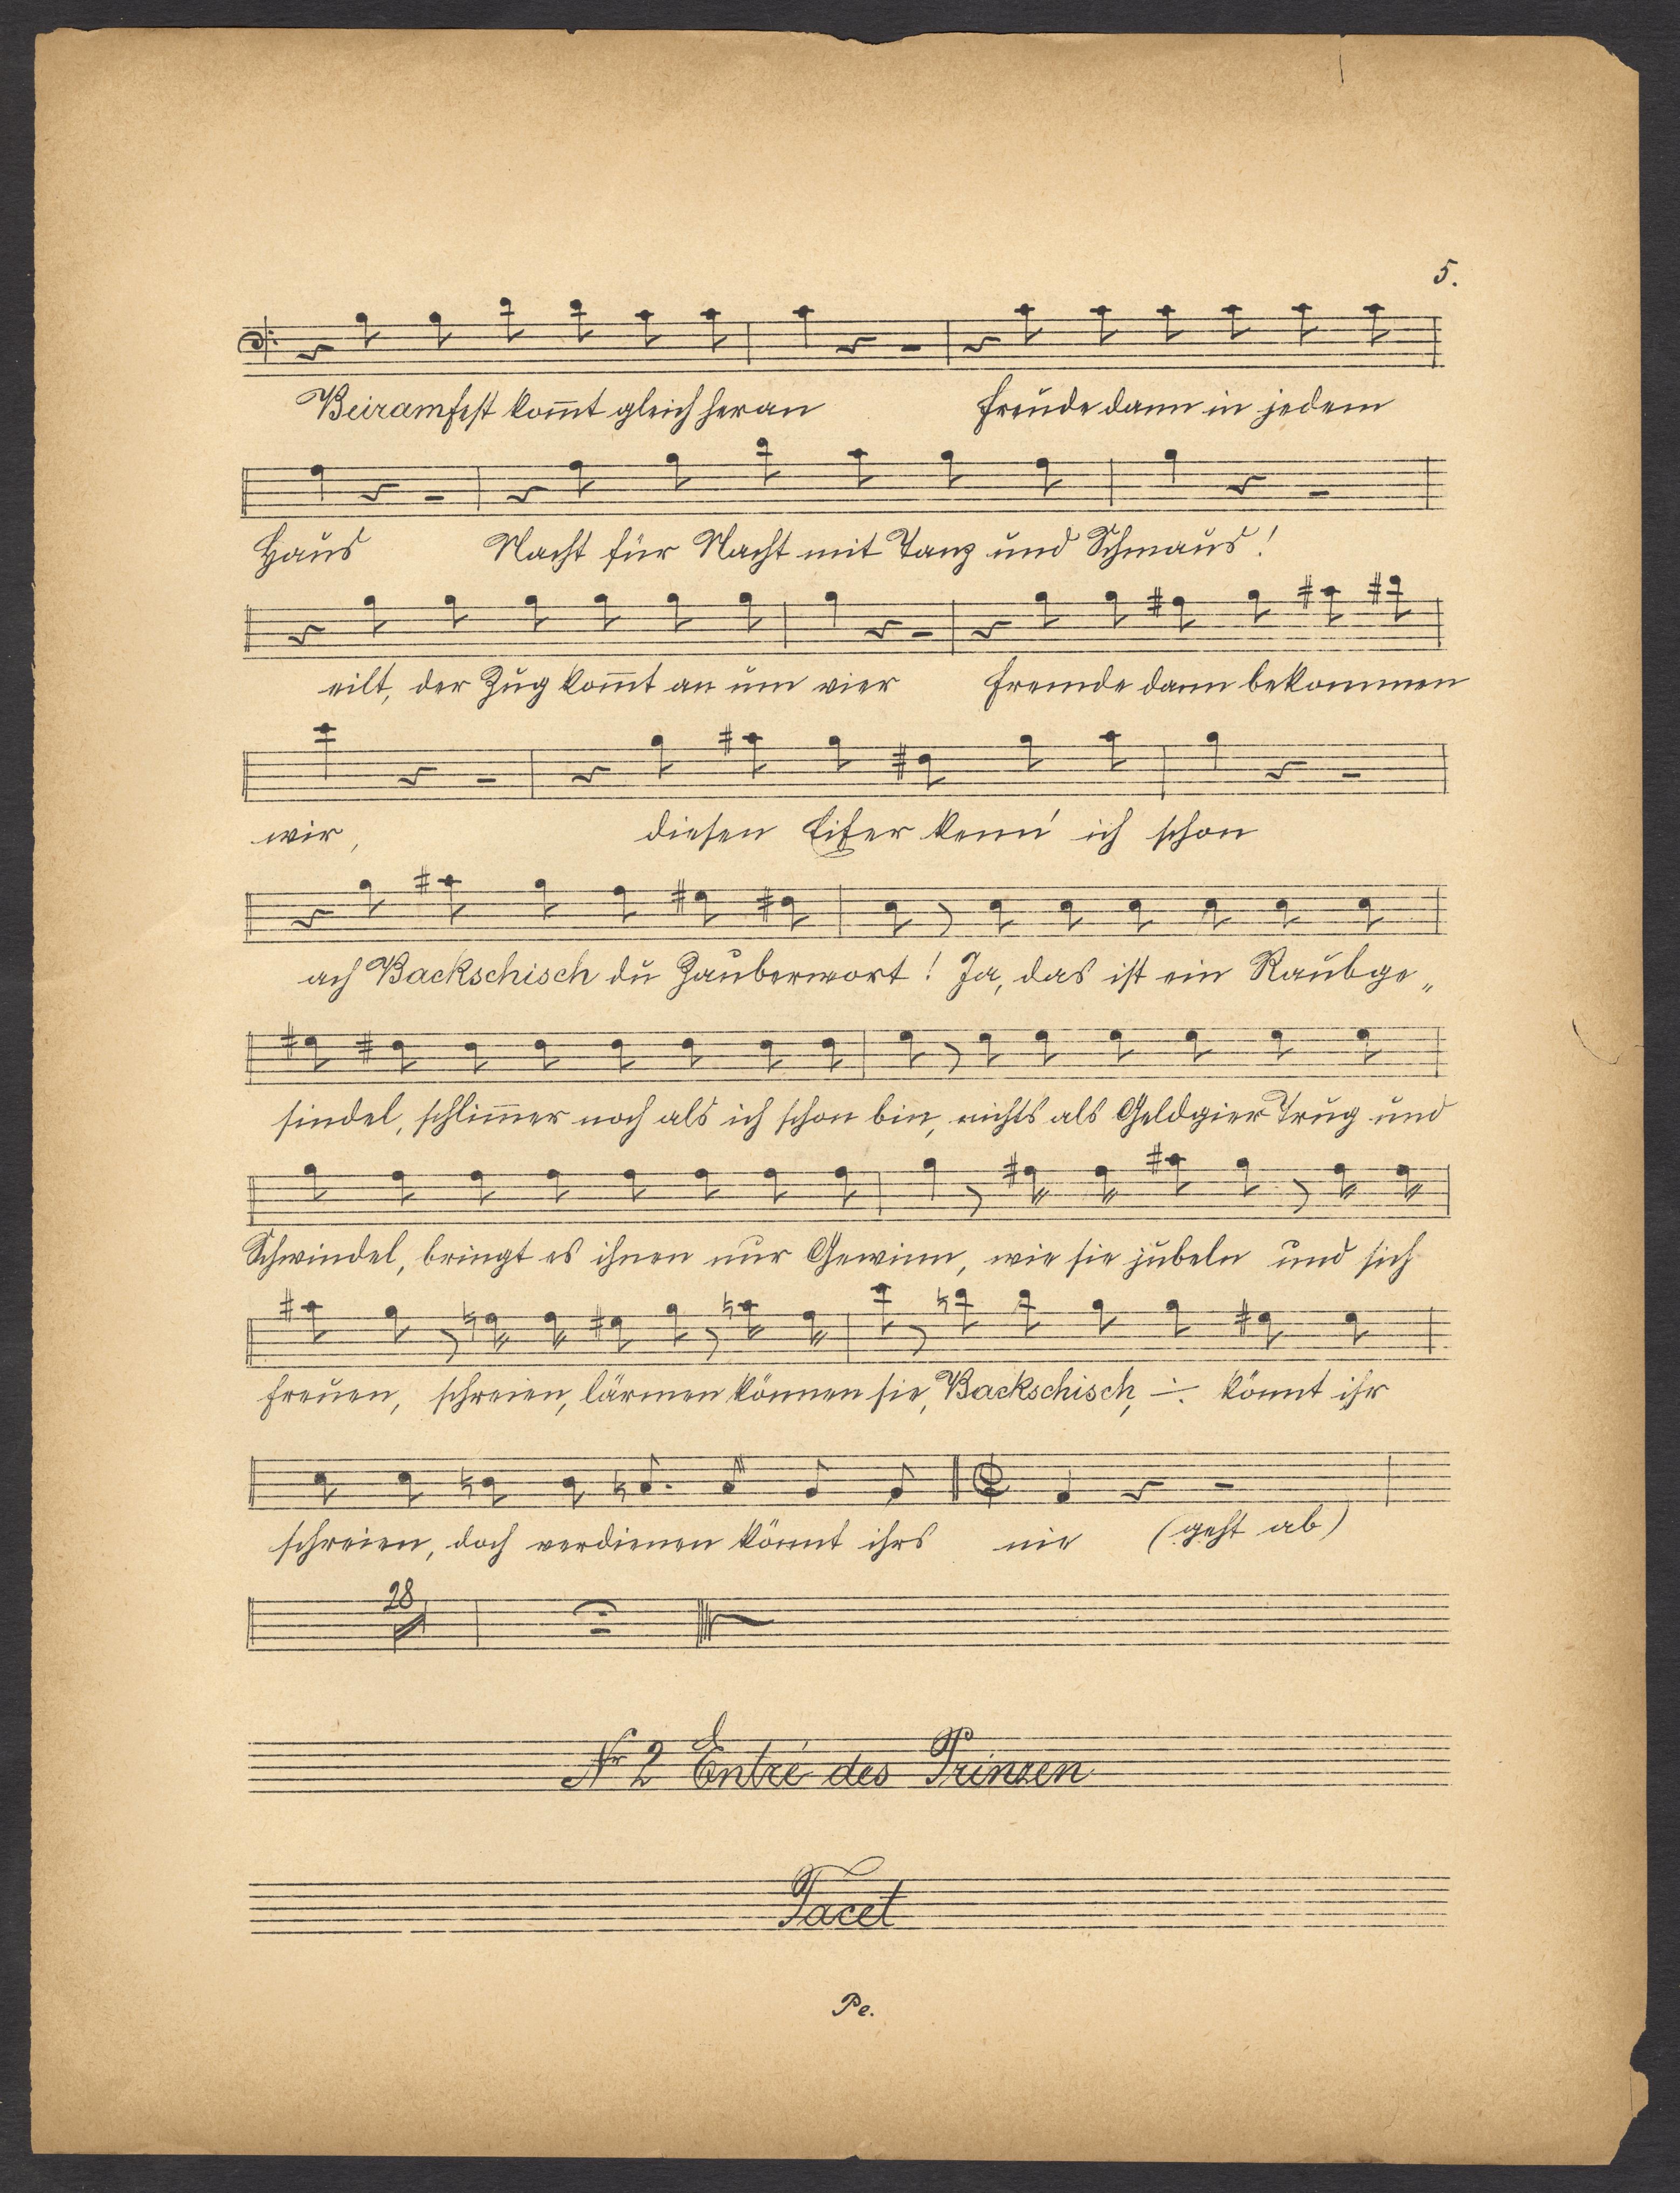 5.
Beiramfest kom̄t gleich heran Freude dann in jedem
Haus Nacht für Nacht mit Tanz und Schmaus!
eilt, der Zug kom̄t an um vier Fremde dann bekommen
wir, diesen Eifer kenn' ich schon
ach Backschisch du Zauberwort! Ja, das ist ein Raubge„
sindel, schlim̄er noch als ich schon bin, nichts als Geldgier Trug und
Schwindel, bringt es ihnen nur Gewinn, wie sie jubeln und sich
freuen, schreien, lärmen können sie, Backschisch, ÷ könnt ihr
schreien, doch verdienen könnt ihrs nie (geht ab)
28
Nr 2 Entré des Prinzen
Tacet
Pe.